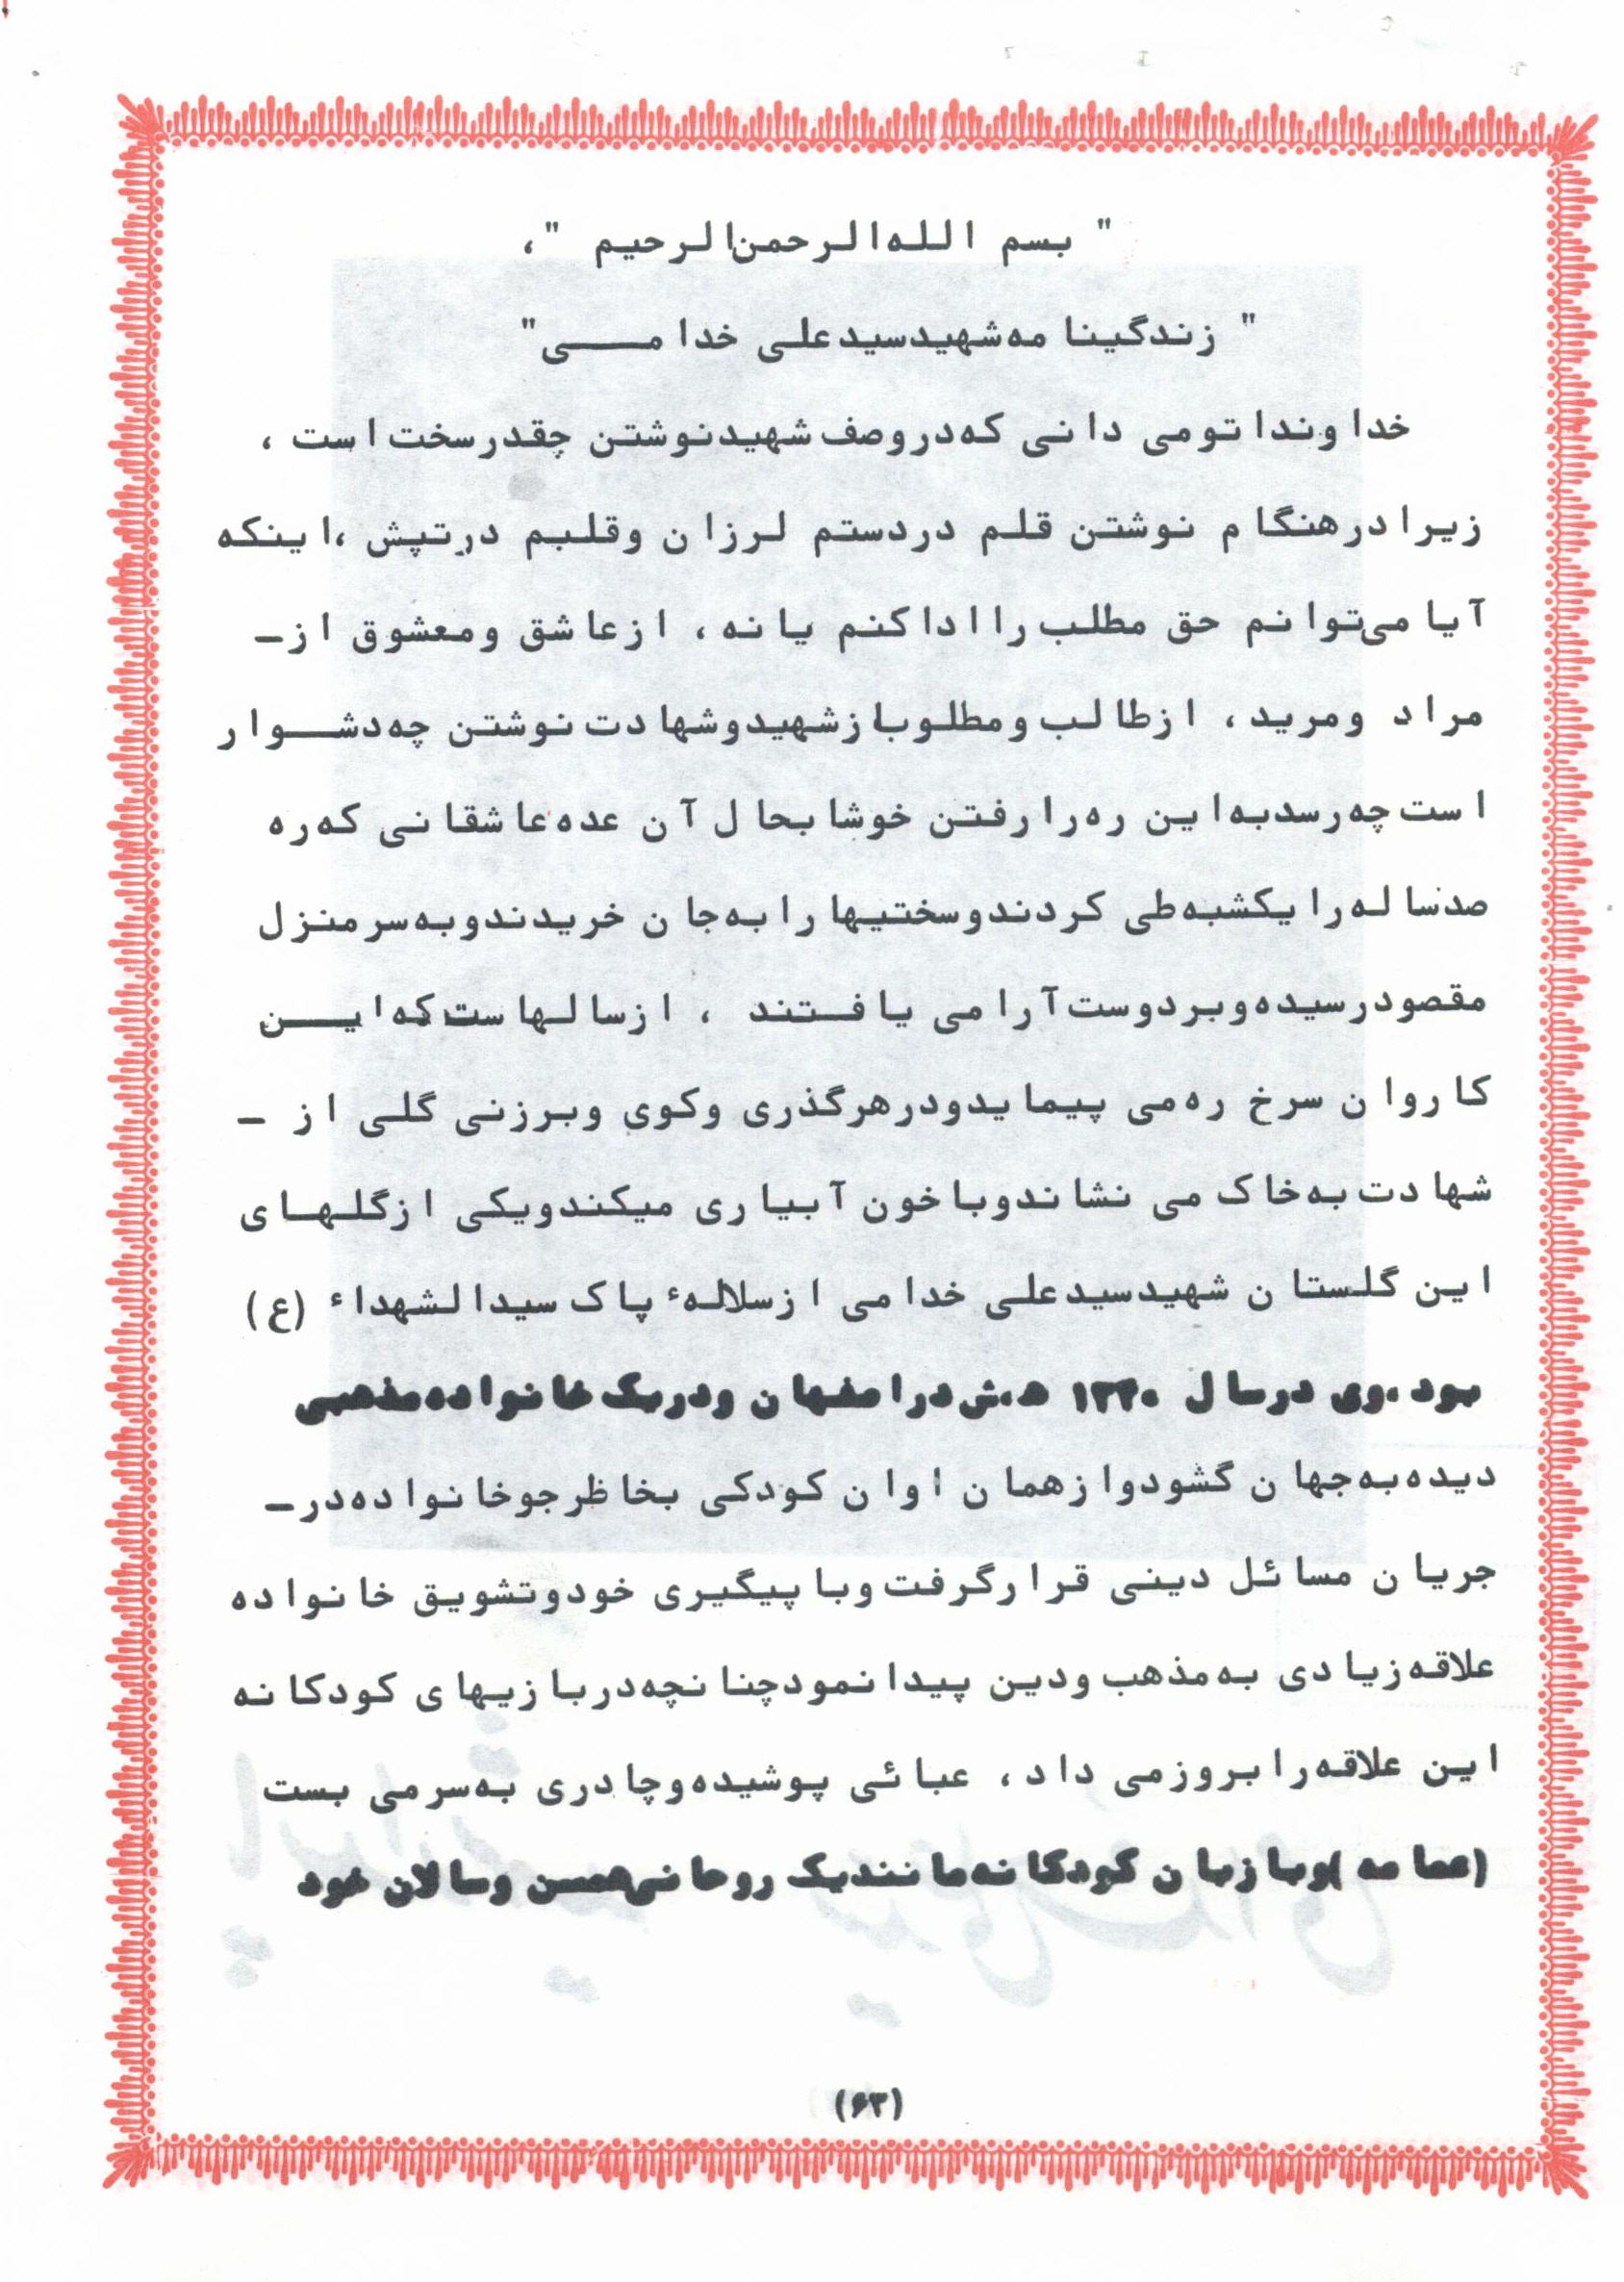 " بسم الله الرحمن الرحیم "،
" زندگینامه شهید سید علی خدامــی"
خداوندا تو می دانی که در وصف شهید نوشتن چقدر سخت است ،
زیرا در هنگام نوشتن قلم در دستم لرزان وقلبم در تپش ،اینکه
آیا می‌توانم حق مطلب را ادا کنم یا نه ، از عاشق ومعشوق از-
مراد ومرید ، از طالب ومطلوب از شهید وشهادت نوشتن چه دشــوار
است چه رسد به این ره را رفتن خوشا بحال آن عده عاشقانی که ره
صدساله را یکشبه طی کردند وسختیها را به جان خریدند وبه سر منزل
مقصود رسیده وبر دوست آرامی یافــتند ، از سالهاست که ایــن
کاروان سرخ ره می پیماید ودر هر گذری وکوی وبرزنی گلی از -
شهادت به خاک می نشاند وبا خون آبیاری میکند ویکی از گلهــای
این گلستان شهید سید علی خدامی از سلاله‌ٔ پاک سیدالشهداء (ع)
بود .وی در سال ۱۳۴۰ ه.ش در اصفهان ودر یک خانواده مذهبی
دیده به جهان گشود واز همان اوان کودکی بخاظر جو خانواده در-
جریان مسائل دینی قرار گرفت وبا پیگیری خود وتشویق خانواده
علاقه زیادی به مذهب ودین پیدا نمود چنانچه در بازیهای کودکانه
این علاقه را بروز می داد ، عبائی پوشیده وچادری به سر می بست
(عمامه )وبا زبان کودکانه مانند یک روحانی همسن وسالان خود
(۶۳)